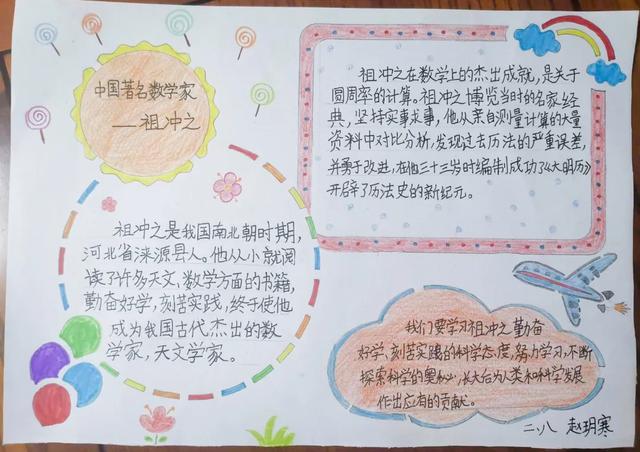 中国著名数学家
——祖冲之
祖冲之在数学上的杰出成就，是关于
圆周率的计算。祖冲之博览当时的名家经
典，坚持实事求事，他从亲自测量计算的大量
资料中对比分析，发现过去历法的严重误差，
并勇于改进，在他三十三岁时编制成功了《大明历》
开辟了历法史的新纪元。
祖冲之是我国南北朝时期，
河北省涞源县人。他从小就阅
读了许多天文、数学方面的书籍，
勤奋好学，刻苦实践，终于使他
成为我国古代杰出的数
学家，天文学家。
我们要学习祖冲之勤奋
好学、刻苦实践的科学态度，努力学习，不断
探索科学的奥秘，长大后为人类和科学发展
作出应有的贡献。
二、八 赵玥寒